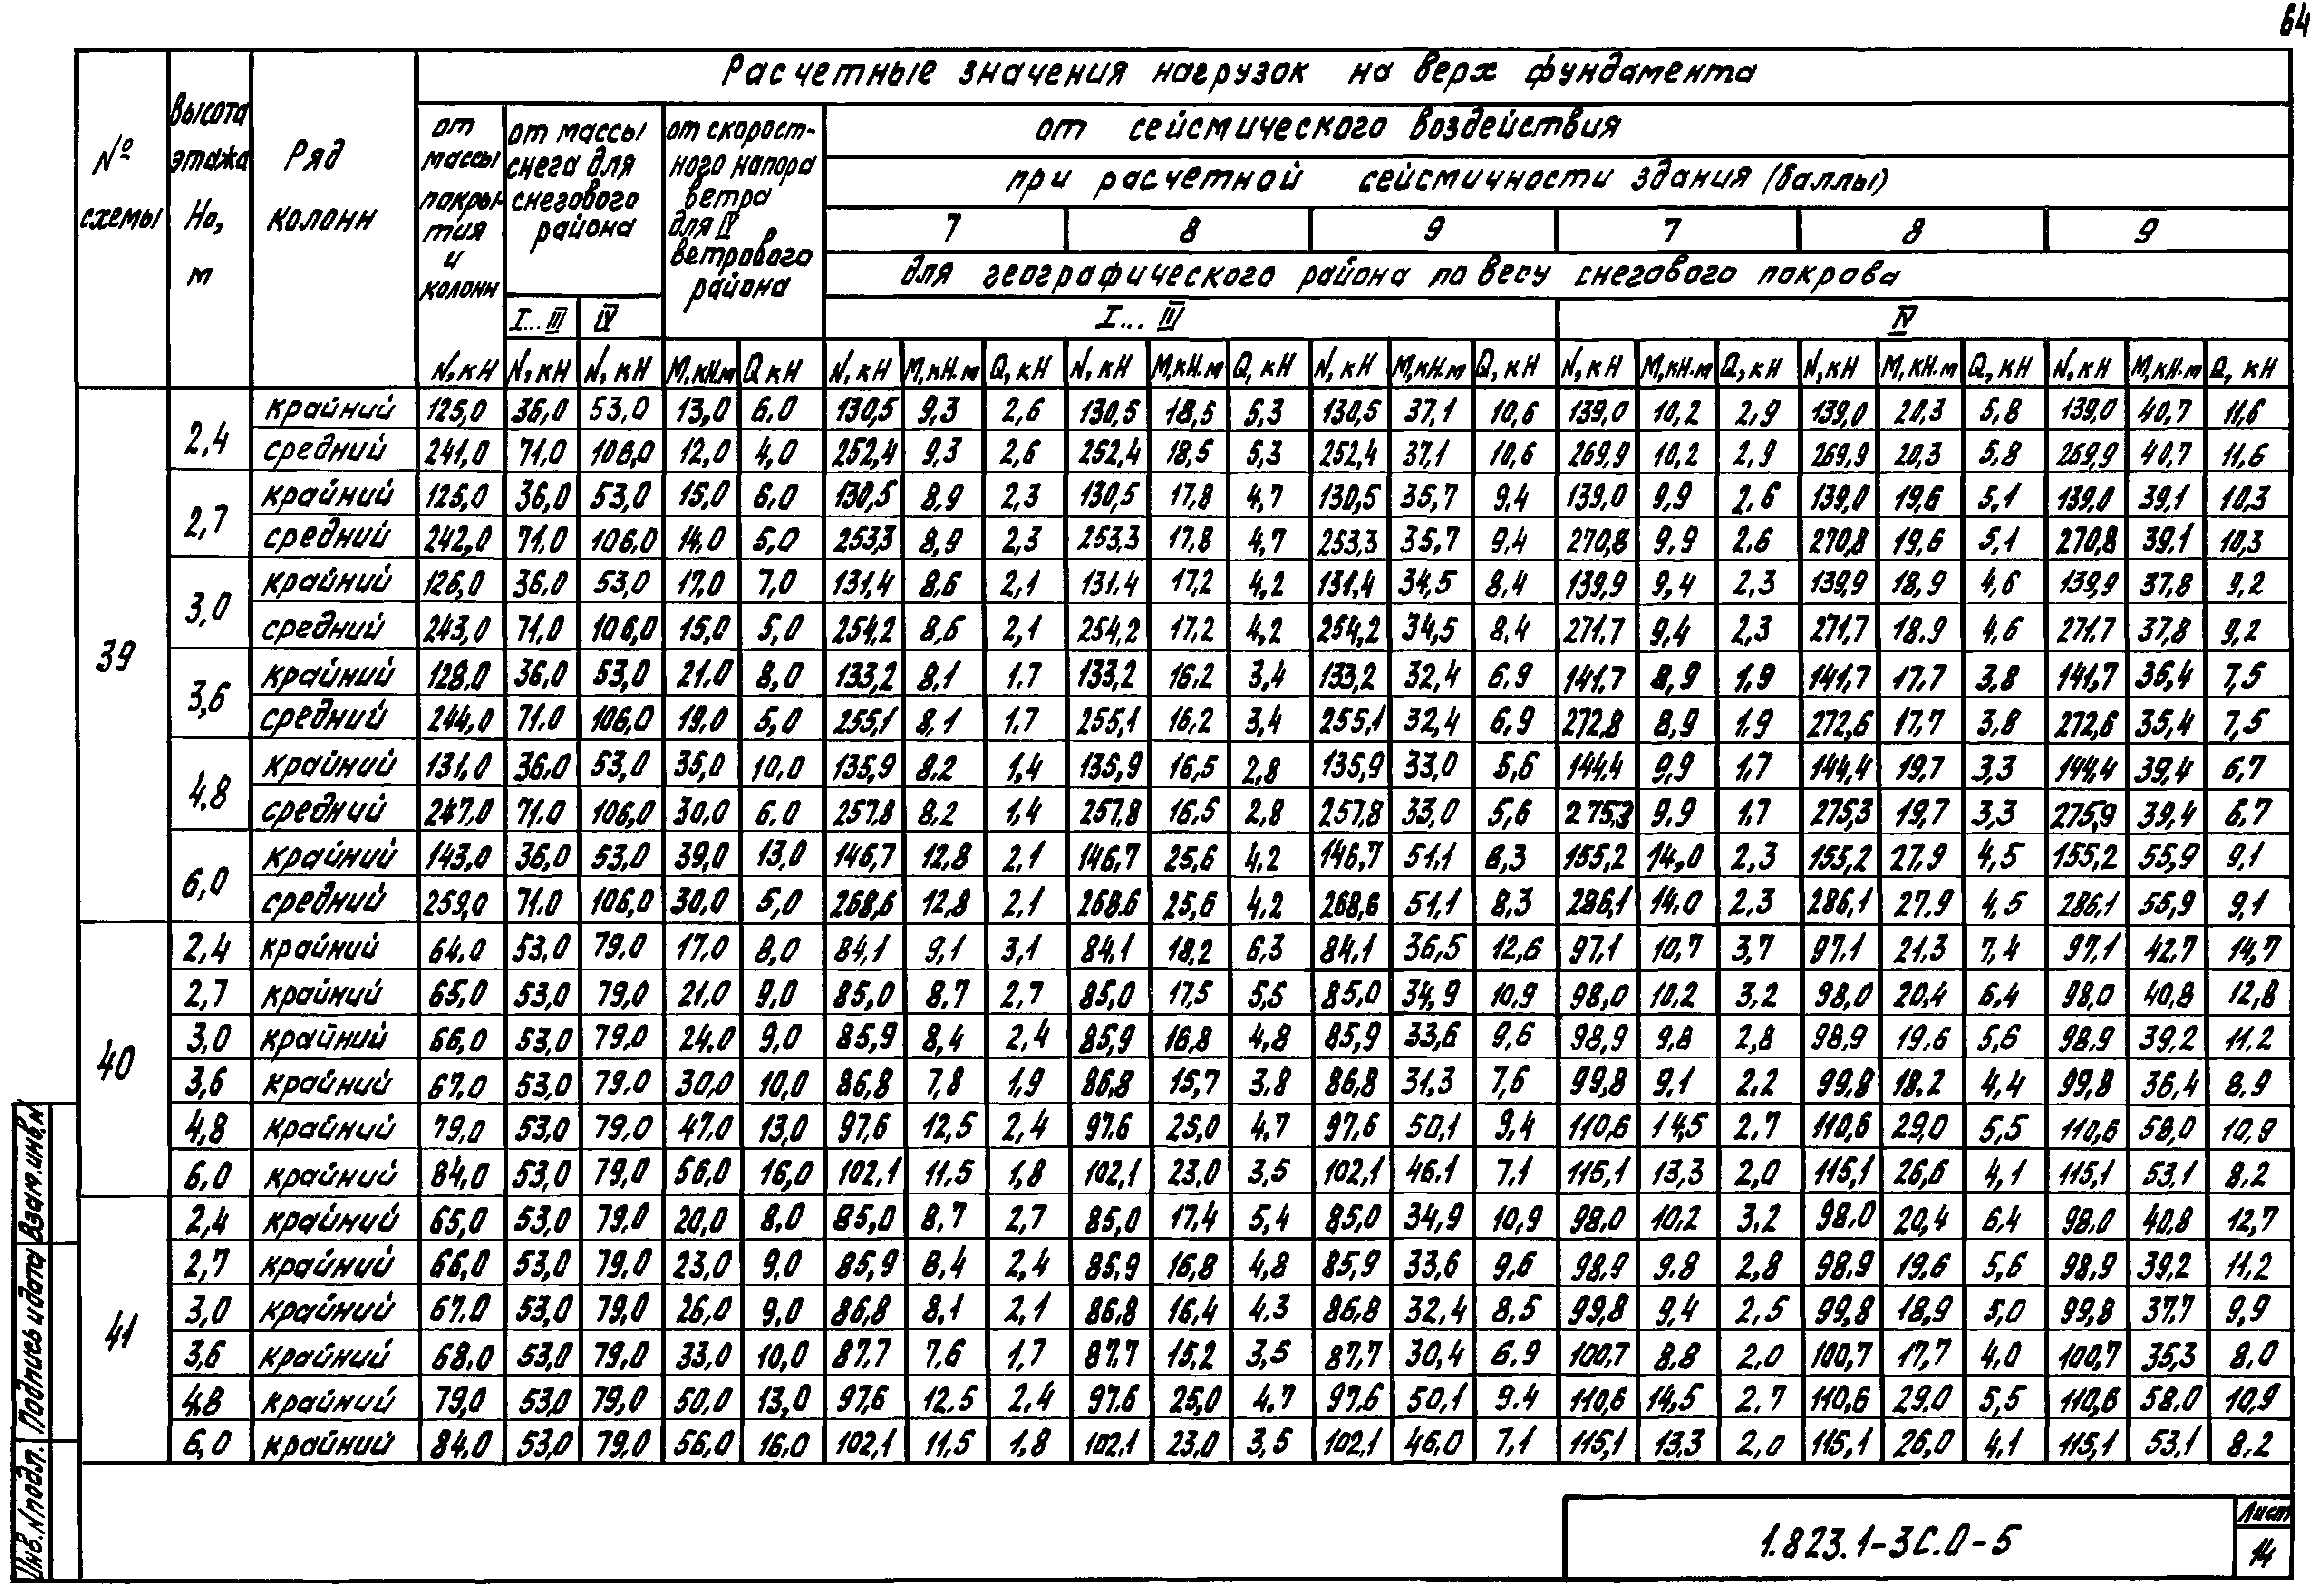 64
Расчетные значения нагрузок на верх фундамента
№ схемы
Высота этажа Но, м
Ряд колонн
от массы покрытия и колонн
от массы снега для снегового района
от скоростного напора ветра для IV ветрового района
от сейсмического воздействия
при расчетной сейсмичности здания (баллы)
7 8 9 7 8 9
для географического района по весу снегового покрова
I...III IV I...III IV
N,кН N,кН N,кН М,кН.м Q кН N,кН М,кН.м Q,кН N,кН М,кН.м Q,кН N,кН М,кН.м Q,кН N,кН М,кН.м Q,кН N,кН М,кН.м Q,кН N,кН М,кН.м Q,кН
39
2,4 крайний 125,0 36,0 53,0 13,0 6,0 130,5 9,3 2,6 130,5 18,5 5,3 130,5 37,1 10,6 139,0 10,2 2,9 139,0 20,3 5,8 139,0 40,7 11,6
средний 241,0 71,0 106,0 12,0 4,0 252,4 9,3 2,6 252,4 18,5 5,3 252,4 37,1 10,6 269,9 10,2 2,9 269,9 20,3 5,8 269,9 40,7 11,6
2,7 крайний 125,0 36,0 53,0 15,0 6,0 130,5 8,9 2,3 130,5 17,8 4,7 130,5 35,7 9,4 139,0 9,9 2,6 139,0 19,6 5,1 139,0 39,1 10,3
средний 242,0 71,0 106,0 14,0 5,0 253,3 8,9 2,3 253,3 17,8 4,7 253,3 35,7 9,4 270,8 9,9 2,6 270,8 19,6 5,1 270,8 39,1 10,3
3,0 крайний 126,0 36,0 53,0 17,0 7,0 131,4 8,6 2,1 131,4 17,2 4,2 131,4 34,5 8,4 139,9 9,4 2,3 139,9 18,9 4,6 139,9 37,8 9,2
средний 243,0 71,0 106,0 15,0 5,0 254,2 8,6 2,1 254,2 17,2 4,2 254,2 34,5 8,4 271,7 9,4 2,3 271,7 18,9 4,6 271,7 37,8 9,2
3,6 крайний 128,0 36,0 53,0 21,0 8,0 133,2 8,1 1,7 133,2 16,2 3,4 133,2 32,4 6,9 141,7 8,9 1,9 141,7 17,7 3,8 141,7 36,4 7,5
средний 244,0 71,0 106,0 19,0 5,0 255,1 8,1 1,7 255,1 16,2 3,4 255,1 32,4 6,9 272,8 8,9 1,9 272,6 17,7 3,8 272,6 35,4 7,5
4,8 крайний 131,0 36,0 53,0 35,0 10,0 135,9 8,2 1,4 135,9 16,5 2,8 135,9 33,0 5,6 144,4 9,9 1,7 144,4 19,7 3,3 144,4 39,4 6,7
средний 247,0 71,0 106,0 30,0 6,0 257,8 8,2 1,4 257,8 16,5 2,8 257,8 33,0 5,6 275,3 9,9 1,7 275,3 19,7 3,3 275,9 39,4 6,7
6,0 крайний 143,0 36,0 53,0 39,0 13,0 146,7 12,8 2,1 146,7 25,6 4,2 146,7 51,1 8,3 155,2 14,0 2,3 155,2 27,9 4,5 155,2 55,9 9,1
средний 259,0 71,0 106,0 30,0 5,0 268,6 12,8 2,1 268,6 25,6 4,2 268,6 51,1 8,3 286,1 14,0 2,3 286,1 27,9 4,5 286,1 55,9 9,1
40
2,4 крайний 64,0 53,0 79,0 17,0 8,0 84,1 9,1 3,1 84,1 18,2 6,3 84,1 36,5 12,6 97,1 10,7 3,7 97,1 21,3 7,4 97,1 42,7 14,7
2,7 крайний 65,0 53,0 79,0 21,0 9,0 85,0 8,7 2,7 85,0 17,5 5,5 85,0 34,9 10,9 98,0 10,2 3,2 98,0 20,4 6,4 98,0 40,8 12,8
3,0 крайний 66,0 53,0 79,0 24,0 9,0 85,9 8,4 2,4 85,9 16,8 4,8 85,9 33,6 9,6 98,9 9,8 2,8 98,9 19,6 5,6 98,9 39,2 11,2
3,6 крайний 67,0 53,0 79,0 30,0 10,0 86,8 7,8 1,9 86,8 15,7 3,8 86,8 31,3 7,6 99,8 9,1 2,2 99,8 18,2 4,4 99,8 36,4 8,9
4,8 крайний 79,0 53,0 79,0 47,0 13,0 97,6 12,5 2,4 97,6 25,0 4,7 97,6 50,1 9,4 110,6 14,5 2,7 110,6 29,0 5,5 110,6 58,0 10,9
6,0 крайний 84,0 53,0 79,0 56,0 16,0 102,1 11,5 1,8 102,1 23,0 3,5 102,1 46,1 7,1 115,1 13,3 2,0 115,1 26,6 4,1 115,1 53,1 8,2
41
2,4 крайний 65,0 53,0 79,0 20,0 8,0 85,0 8,7 2,7 85,0 17,4 5,4 85,0 34,9 10,9 98,0 10,2 3,2 98,0 20,4 6,4 98,0 40,8 12,7
2,7 крайний 66,0 53,0 79,0 23,0 9,0 85,9 8,4 2,4 85,9 16,8 4,8 85,9 33,6 9,6 98,9 9,8 2,8 98,9 19,6 5,6 98,9 39,2 11,2
3,0 крайний 67,0 53,0 79,0 26,0 9,0 86,8 8,1 2,1 86,8 16,4 4,3 86,8 32,4 8,5 99,8 9,4 2,5 99,8 18,9 5,0 99,8 37,7 9,9
3,6 крайний 68,0 53,0 79,0 33,0 10,0 87,7 7,6 1,7 87,7 15,2 3,5 87,7 30,4 6,9 100,7 8,8 2,0 100,7 17,7 4,0 100,7 35,3 8,0
4,8 крайний 79,0 53,0 79,0 50,0 13,0 97,6 12,5 2,4 97,6 25,0 4,7 97,6 50,1 9,4 110,6 14,5 2,7 110,6 29,0 5,5 110,6 58,0 10,9
6,0 крайний 84,0 53,0 79,0 56,0 16,0 102,1 11,5 1,8 102,1 23,0 3,5 102,1 46,0 7,1 115,1 13,3 2,0 115,1 26,0 4,1 115,1 53,1 8,2
Инв.N подл. Подпись и дата Взам.инв.N
1.823.1-3С.0-5
Лист
14